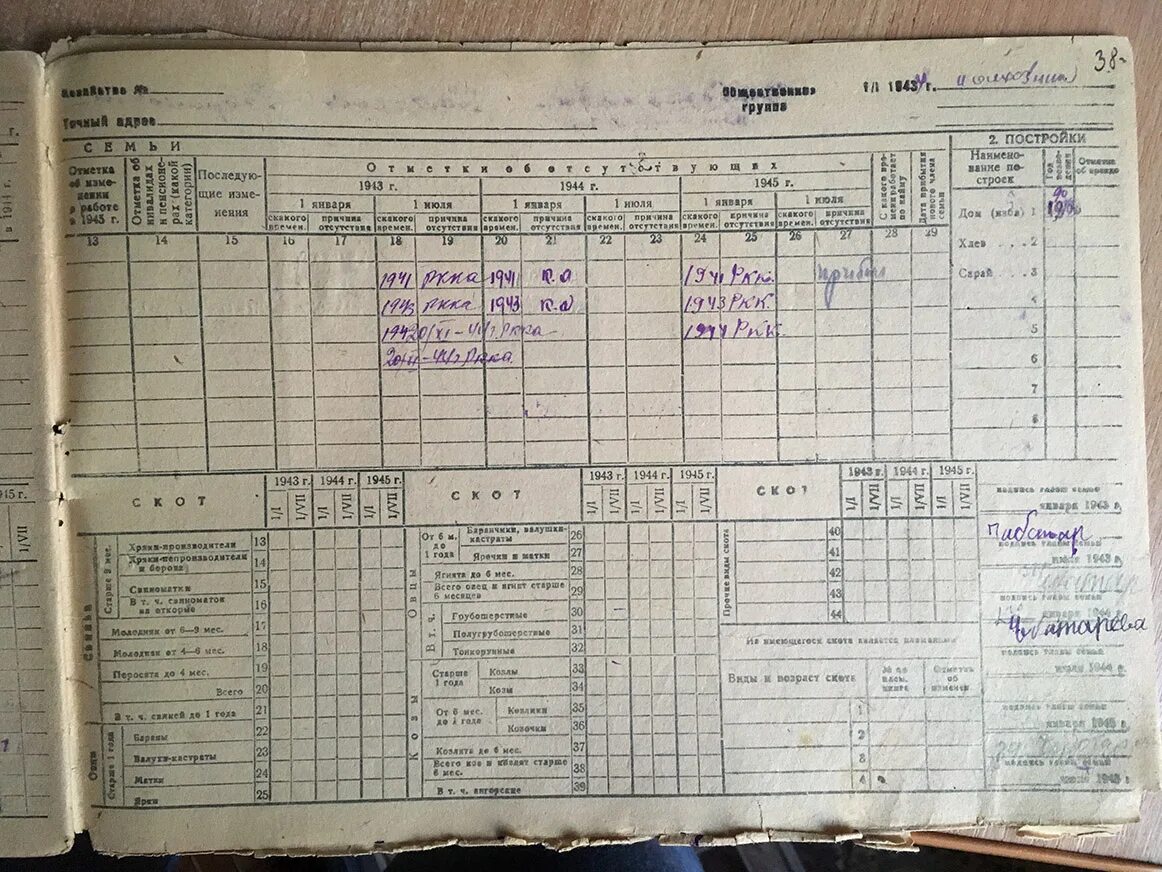 38-
Хозяйство №
Общественная группа
1/I 1943 г. колхозники
Точный адрес
СЕМЬИ
Отметка об изменении в работе в 1945 г.
Отметка об инвалидах и пенсионерах (какой категории)
Последующие изменения
Отметки об отсутствующих
1943 г. 1944 г. 1945 г.
1 января 1 июля 1 января 1 июля 1 января 1 июля
с какого времен. причина отсутствия с какого времен. причина отсутствия с какого времен. причина отсутствия с какого времен. причина отсутствия с какого времен. причина отсутствия с какого времен. причина отсутствия
С какого времени работает по найму
Дата прибытия нового члена семьи
13 14 15 16 17 18 19 20 21 22 23 24 25 26 27 28 29
1941 РККА 1941 к.а 1941 Ркк. прибыл
1943 ркка 1943 к.а 1943 РКК
1942 20/XI-44г Ркка 1944 Ркк.
20/XI-44г Ркка
2. ПОСТРОЙКИ
Наименование построек
Год возведения
Отметка об аренде
Дом (изба) 1
Хлев . . . 2
Сарай . . . 3
4
5
6
7
8
СКОТ
1943 г. 1944 г. 1945 г.
1/I 1/VII 1/I 1/VII 1/I 1/VII
Свиньи
Старше 9 мес.
Хряки-производители 13
Хряки-непроизводители и борова 14
Свиноматки 15
В т. ч. свиноматок на откорме 16
Молодняк от 6—9 мес. 17
Молодняк от 4—6 мес. 18
Поросята до 4 мес. 19
Всего 20
В т. ч. свиней до 1 года 21
Овцы
Старше 1 года
Бараны 22
Валухи-кастраты 23
Матки 24
Ярки 25
СКОТ
1943 г. 1944 г. 1945 г.
1/I 1/VII 1/I 1/VII 1/I 1/VII
Овцы
От 6 м. до 1 года
Баранчики, валушки-кастраты 26
Ярочки и матки 27
Ягнята до 6 мес. 28
Всего овец и ягнят старше 6 месяцев 29
В т. ч.
Грубошерстные 30
Полугрубошерстные 31
Тонкорунные 32
Козы
Старше 1 года
Козлы 33
Козы 34
От 6 мес. до 1 года
Козлики 35
Козочки 36
Козлята до 6 мес. 37
Всего коз и козлят старше 6 мес. 38
В т. ч. ангорские 39
СКОТ
1943 г. 1944 г. 1945 г.
1/I 1/VII 1/I 1/VII 1/I 1/VII
Прочие виды скота
40
41
42
43
44
Из имеющегося скота является племенными
Виды и возраст скота
№ по плем. книге
Отметка об изменен.
1
2
3
4
подпись главы семьи
января 1943 г
Чабатар
подпись главы семьи
июля 1943 г
подпись главы семьи
января 1944 г
Чабатарева
подпись главы семьи
июля 1944 г
подпись главы семьи
января 1945 г
подпись главы семьи
июля 1945 г
1944 г.
в 1944 г.
1945 г.
1/VII